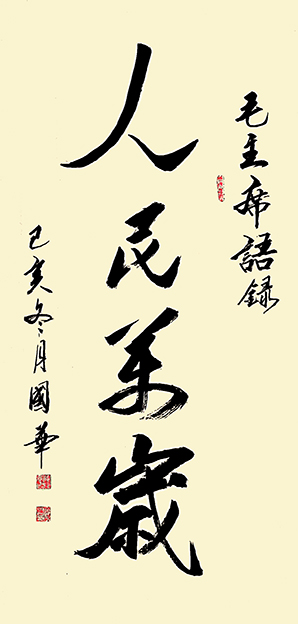 毛主席語録
人民萬歲
己亥冬月國華